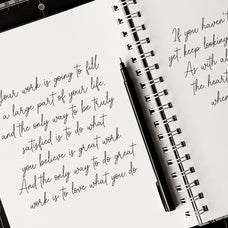 Your work is going to fill
a large part of your life,
and the only way to be truly
satisfied is to do what
you believe is great work.
And the only way to do great
work is to love what you do.
If you haven't
yet, keep looking
As with al
the heart
when